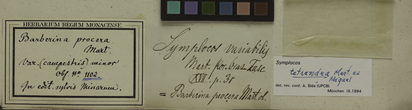 HERBARIUM REGIUM MONACENSE.
Barberina procera
Mart.
Var. (campestris) minor
Obs. N° 1103
In edit. sylvis Minarum.
Symplocos variabilis
Mart. 
XXVI p. 35
= Barberina procera Mart. ol.
Symplocos
tetrandra Mart. ex
Miquel
det. rev. conf. A. Bidá (UPCB)
München 10.1994